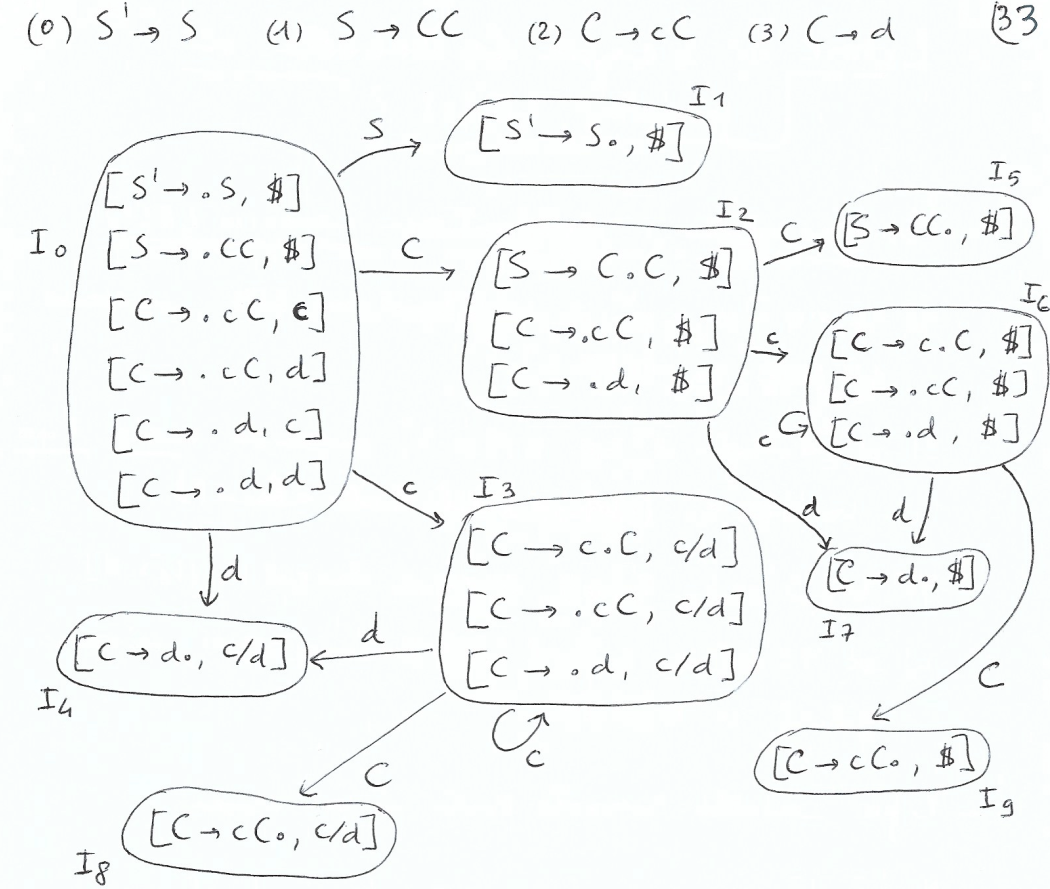 (0) S' → S (1) S → CC (2) C → cC (3) C → d 33
I0
[S' → .S, $]
[S → .CC, $]
[C → .cC, c]
[C → .cC, d]
[C → .d, c]
[C → .d, d]
S
I1
[S' → S., $]
C
I2
[S → C.C, $]
[C → .cC, $]
[C → .d, $]
C
I5
[S → CC., $]
c
I6
[C → c.C, $]
[C → .cC, $]
[C → .d, $]
c
d
d
[C → d., $]
I7
C
[C → cC., $]
I9
c
I3
[C → c.C, c/d]
[C → .cC, c/d]
[C → .d, c/d]
c
d
d
[C → d., c/d]
I4
C
[C → cC., c/d]
I8